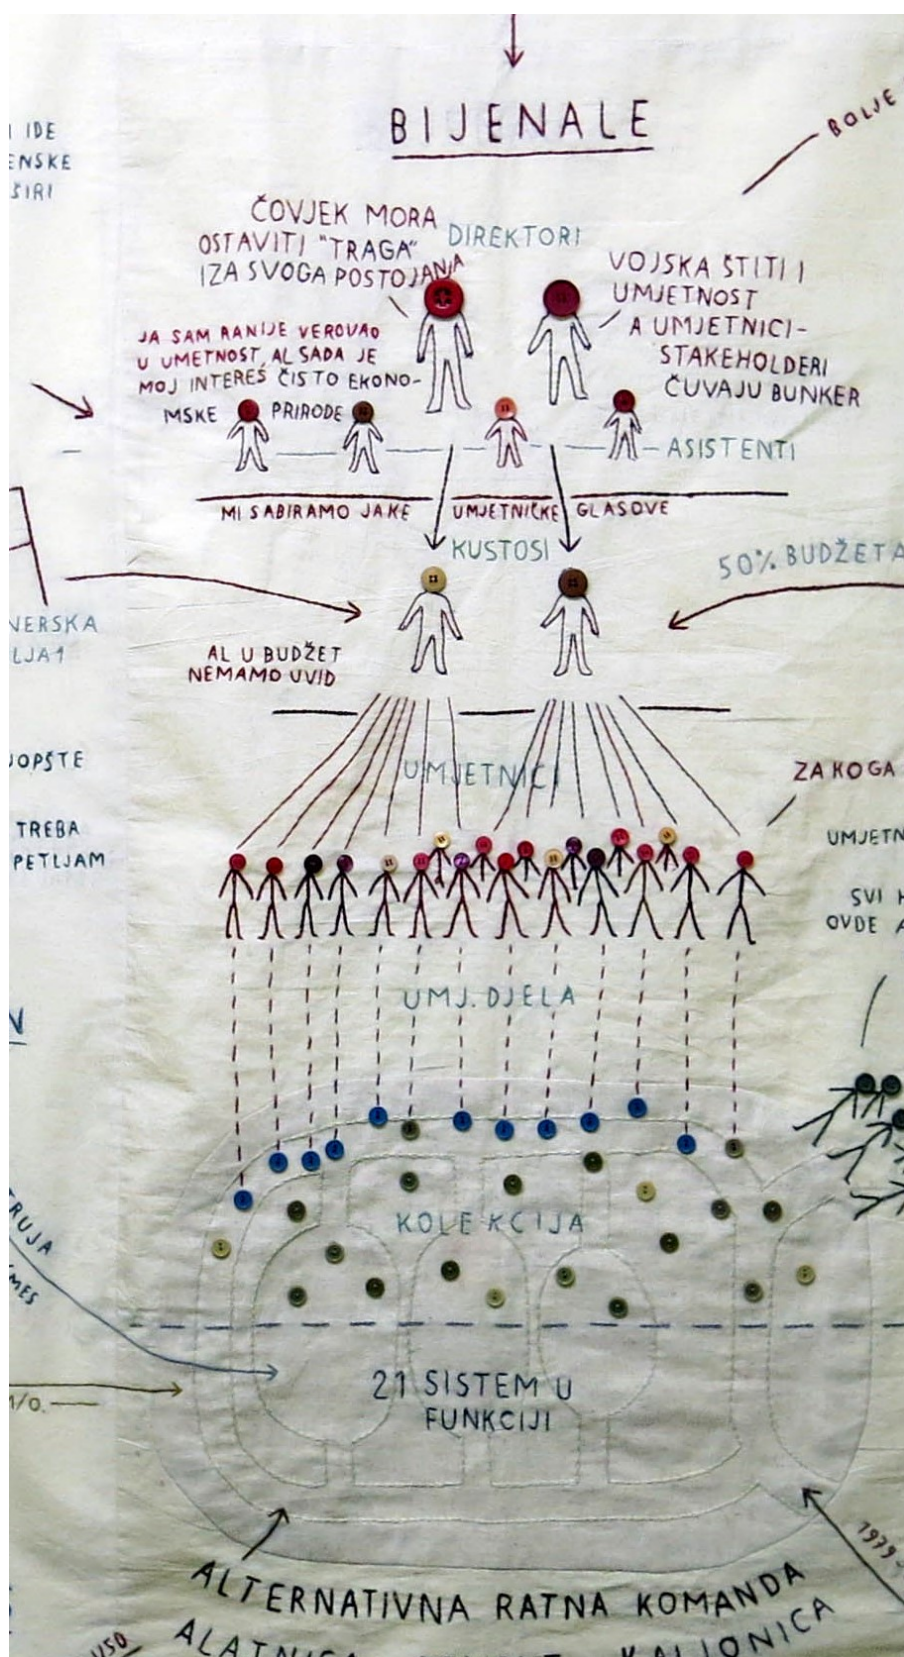 BIJENALE
BOLJE
IDE
ČOVJEK MORA
OSTAVITI "TRAGA"
IZA SVOGA POSTOJANJA
DIREKTORI
VOJSKA ŠTITI I
UMJETNOST
A UMJETNICI-
STAKEHOLDERI
ČUVAJU BUNKER
JA SAM RANIJE VEROVAO
U UMETNOST, AL SADA JE
MOJ INTERES ČISTO EKONO-
MSKE PRIRODE
ASISTENTI
MI SABIRAMO JAKE UMJETNIČKE GLASOVE
KUSTOSI
50% BUDŽETA
AL U BUDŽET
NEMAMO UVID
UMJETNICI
ZA KOGA
TREBA
PETLJAM
UMJETN
SVI
OVDE
UMJ. DJELA
KOLEKCIJA
21 SISTEM U
FUNKCIJI
1979-
ALTERNATIVNA RATNA KOMANDA